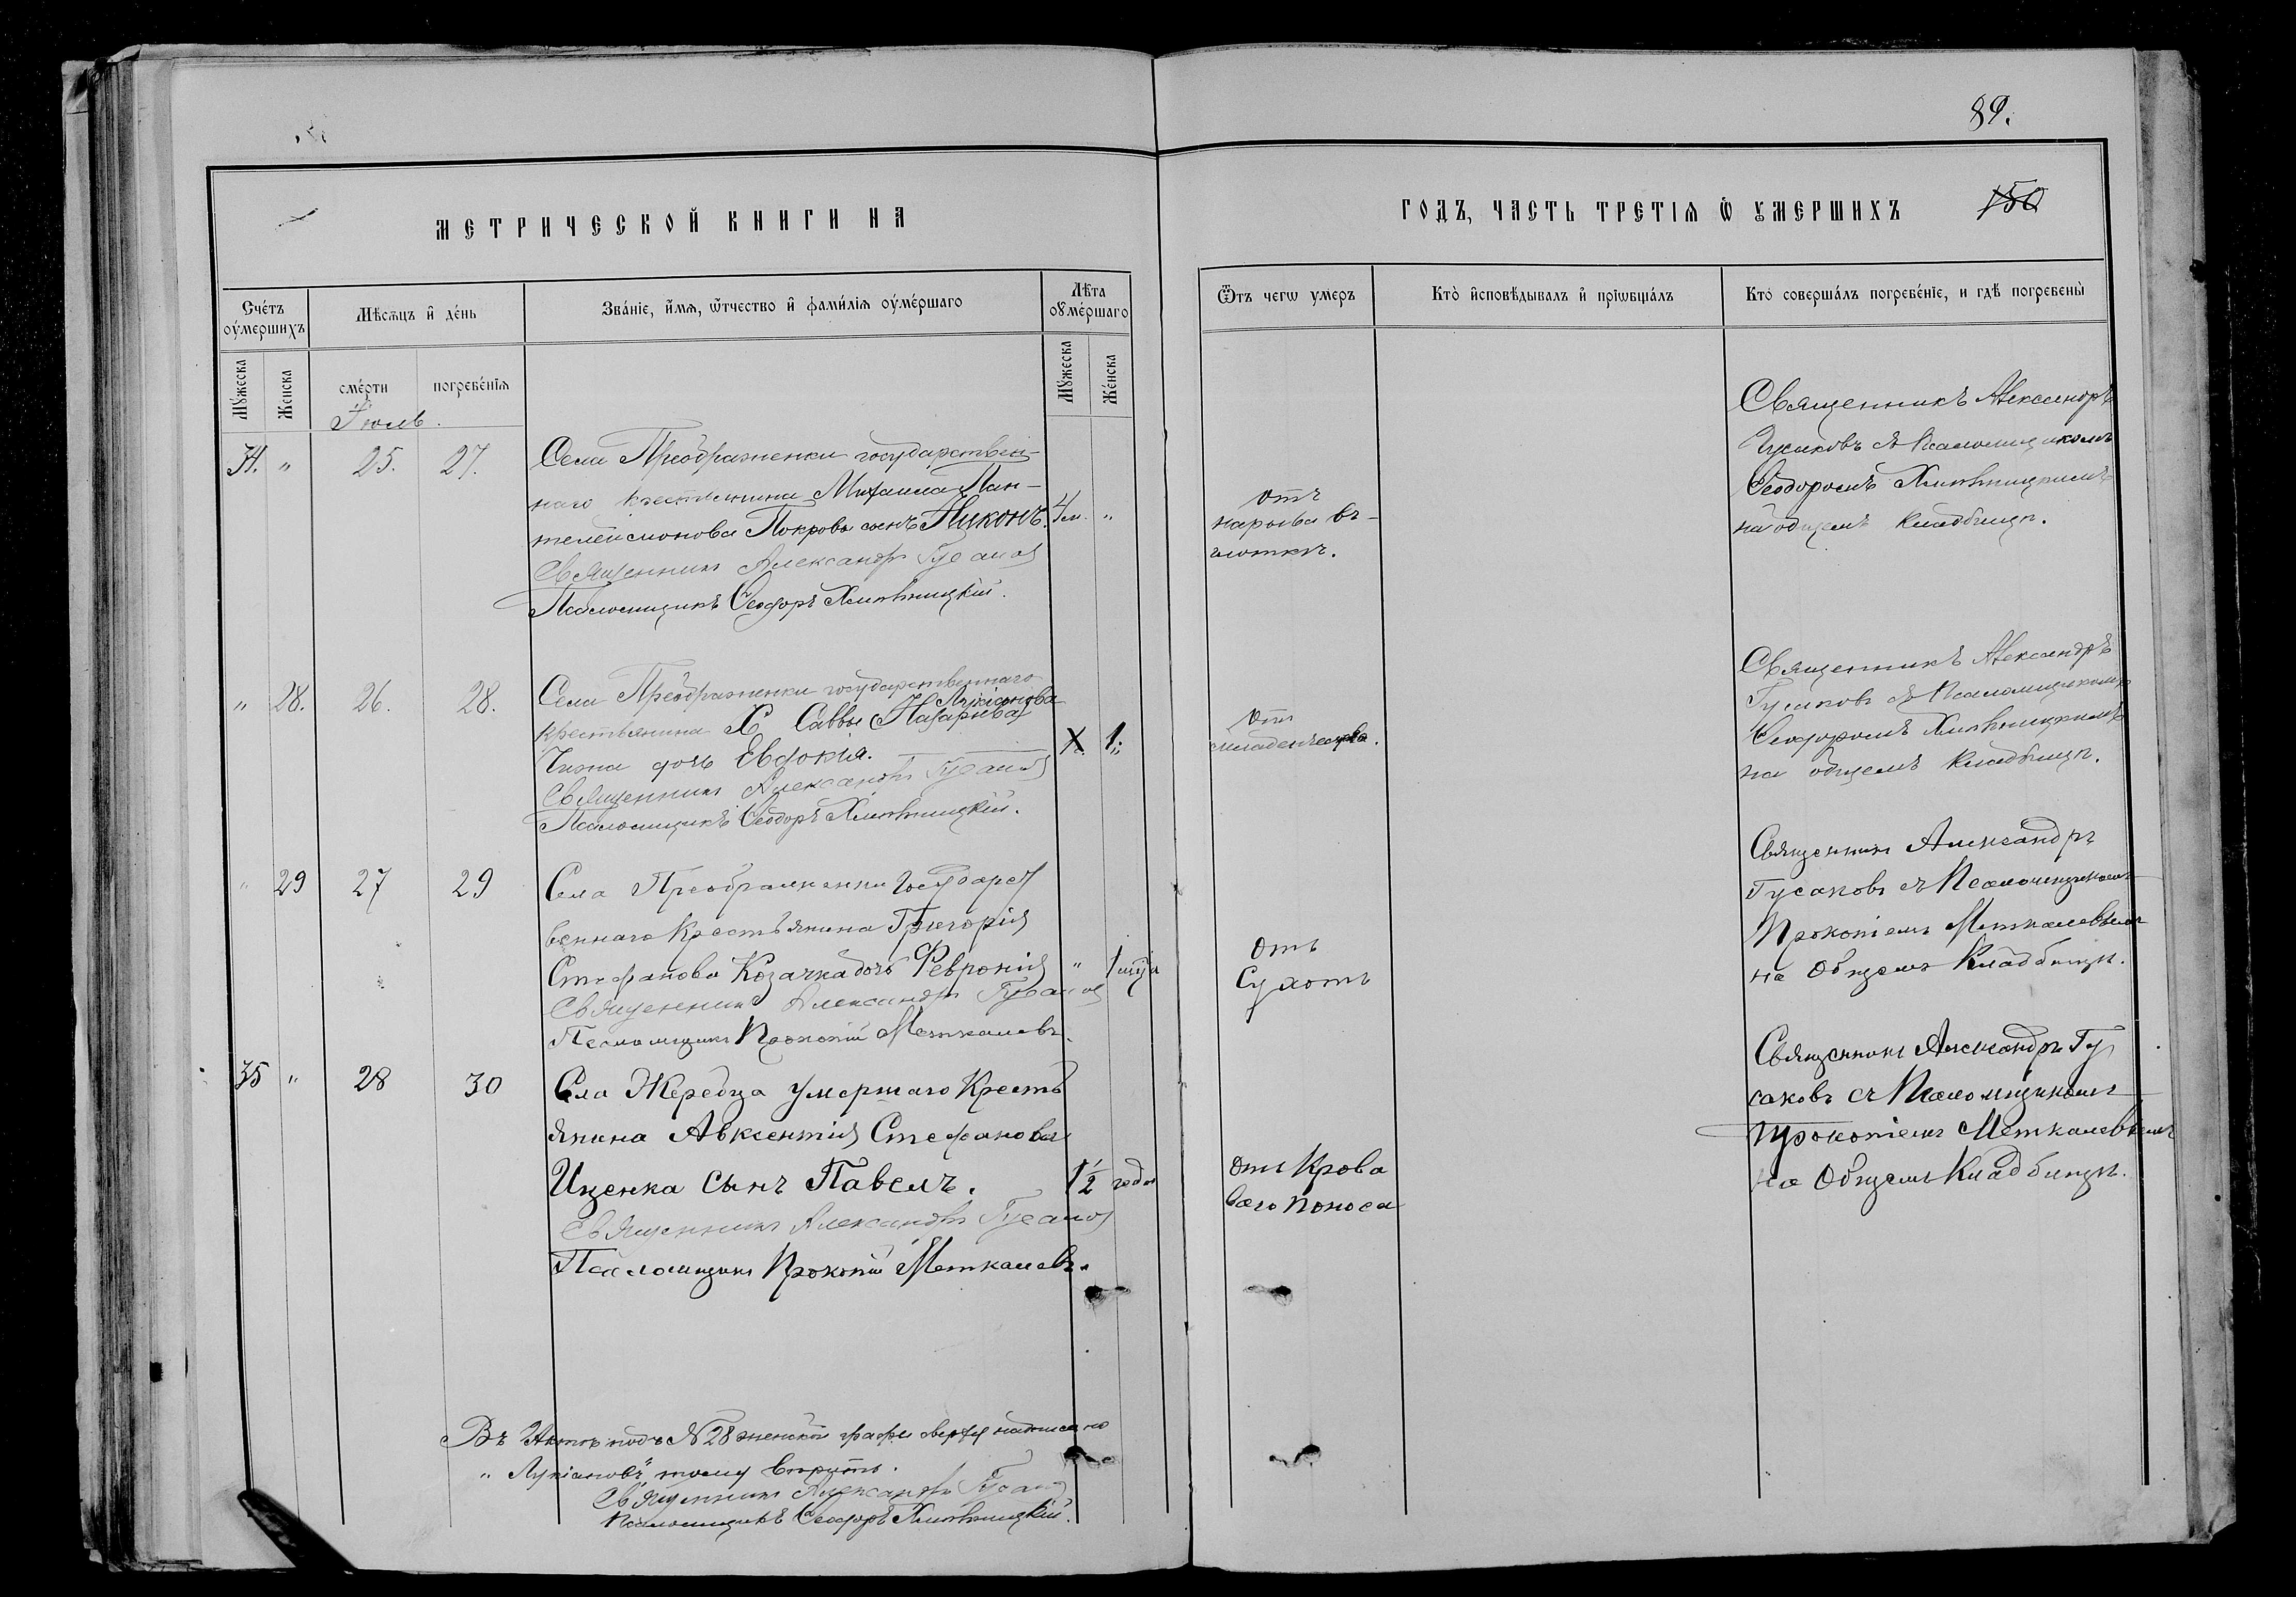 89.
МЕТРИЧЕСКОЙ КНИГИ НА
ГОДЪ, ЧАСТЬ ТРЕТІѦ Ѿ ОУМЕРШИХЪ
150
Сче́тъ оу҆ме́ршихъ
Мѣ́сѧцъ и҆ де́нь
Зва́нїе, и҆́мѧ, ѿтчество и҆ фами́лїѧ оу҆ме́ршаго
Лѣ́та оу҆ме́ршаго
Ѿтъ чегѡ̀ умеръ
Кто̀ и҆сповѣ́дывалъ и҆ прїѡбща́лъ
Кто̀ соверша́лъ погребе́нїе, и гдѣ̀ погребены̀
Мꙋжеска
Женска
сме́рти
погребе́нїѧ
Мꙋ́жеска
Же́нска
Іюль.
34. " 25. 27.
Села Преображенки государствен-
наго крестьянина Михаила Пан-
телеймонова Покровы сынъ Никонъ. 4 м. "
Священникъ Александръ Гусаков
Псаломщикъ Ѳеодоръ Хлипницкій.
отъ
нарыва въ
глоткѣ.
Священникъ Александръ
Гусаковъ съ Псаломщикомъ
Ѳеодоромъ Хлипницкимъ
на общемъ кладбищѣ.
" 28. 26. 28.
Села Преображенки государственнаго
Лукіанова
крестьянина Х Саввы Назаріева
Чижа дочь Евдокія. X. 1.
Священникъ Александръ Гусаков
Псаломщикъ Ѳеодоръ Хлипницкій.
Отъ
младенчества.
Священникъ Александръ
Гусаковъ съ Псаломщикомъ
Ѳеодоромъ Хлипницкимъ
на общемъ кладбищѣ.
" 29 27 29
Села Преображенки Государст
веннаго Крестьянина Григорія
Стефанова Козачка дочь Февронія " 1
Священникъ Александръ Гусаков
Псаломщикъ Прокопій Меткалевъ.
Отъ
Сухотъ
Священникъ Александръ
Гусаковъ съ Псаломщикомъ
Прокопіемъ Меткалевымъ
на Общемъ Кладбищѣ.
35 " 28 30
Села Жеребца умершаго Кресть
янина Авксентія Стефанова
Ищенка сынъ Павелъ. 1½ года
Священникъ Александръ Гусаков
Псаломщикъ Прокопій Меткалевъ.
Отъ Крова
ваго поноса
Священникъ Александръ Гу
саковъ съ Псаломщикомъ
Прокопіемъ Меткалевымъ
на Общемъ Кладбищѣ.
Въ Актѣ подъ № 28 женской графы сверху написано
"Лукіановъ" тому вѣрить.
Священникъ Александръ Гусаков
Псаломщикъ Ѳеодоръ Хлипницкій.